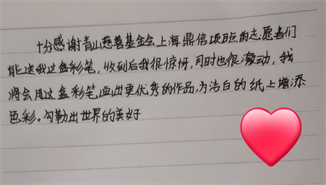 十分感谢青山慈善基金会上海鼎信项目的志愿者们
能送我这盒彩笔，收到后我很惊愕，同时也很激动，我
将会用这盒彩笔画出更优秀的作品，为洁白的纸上增添
色彩。勾勒出世界的美好